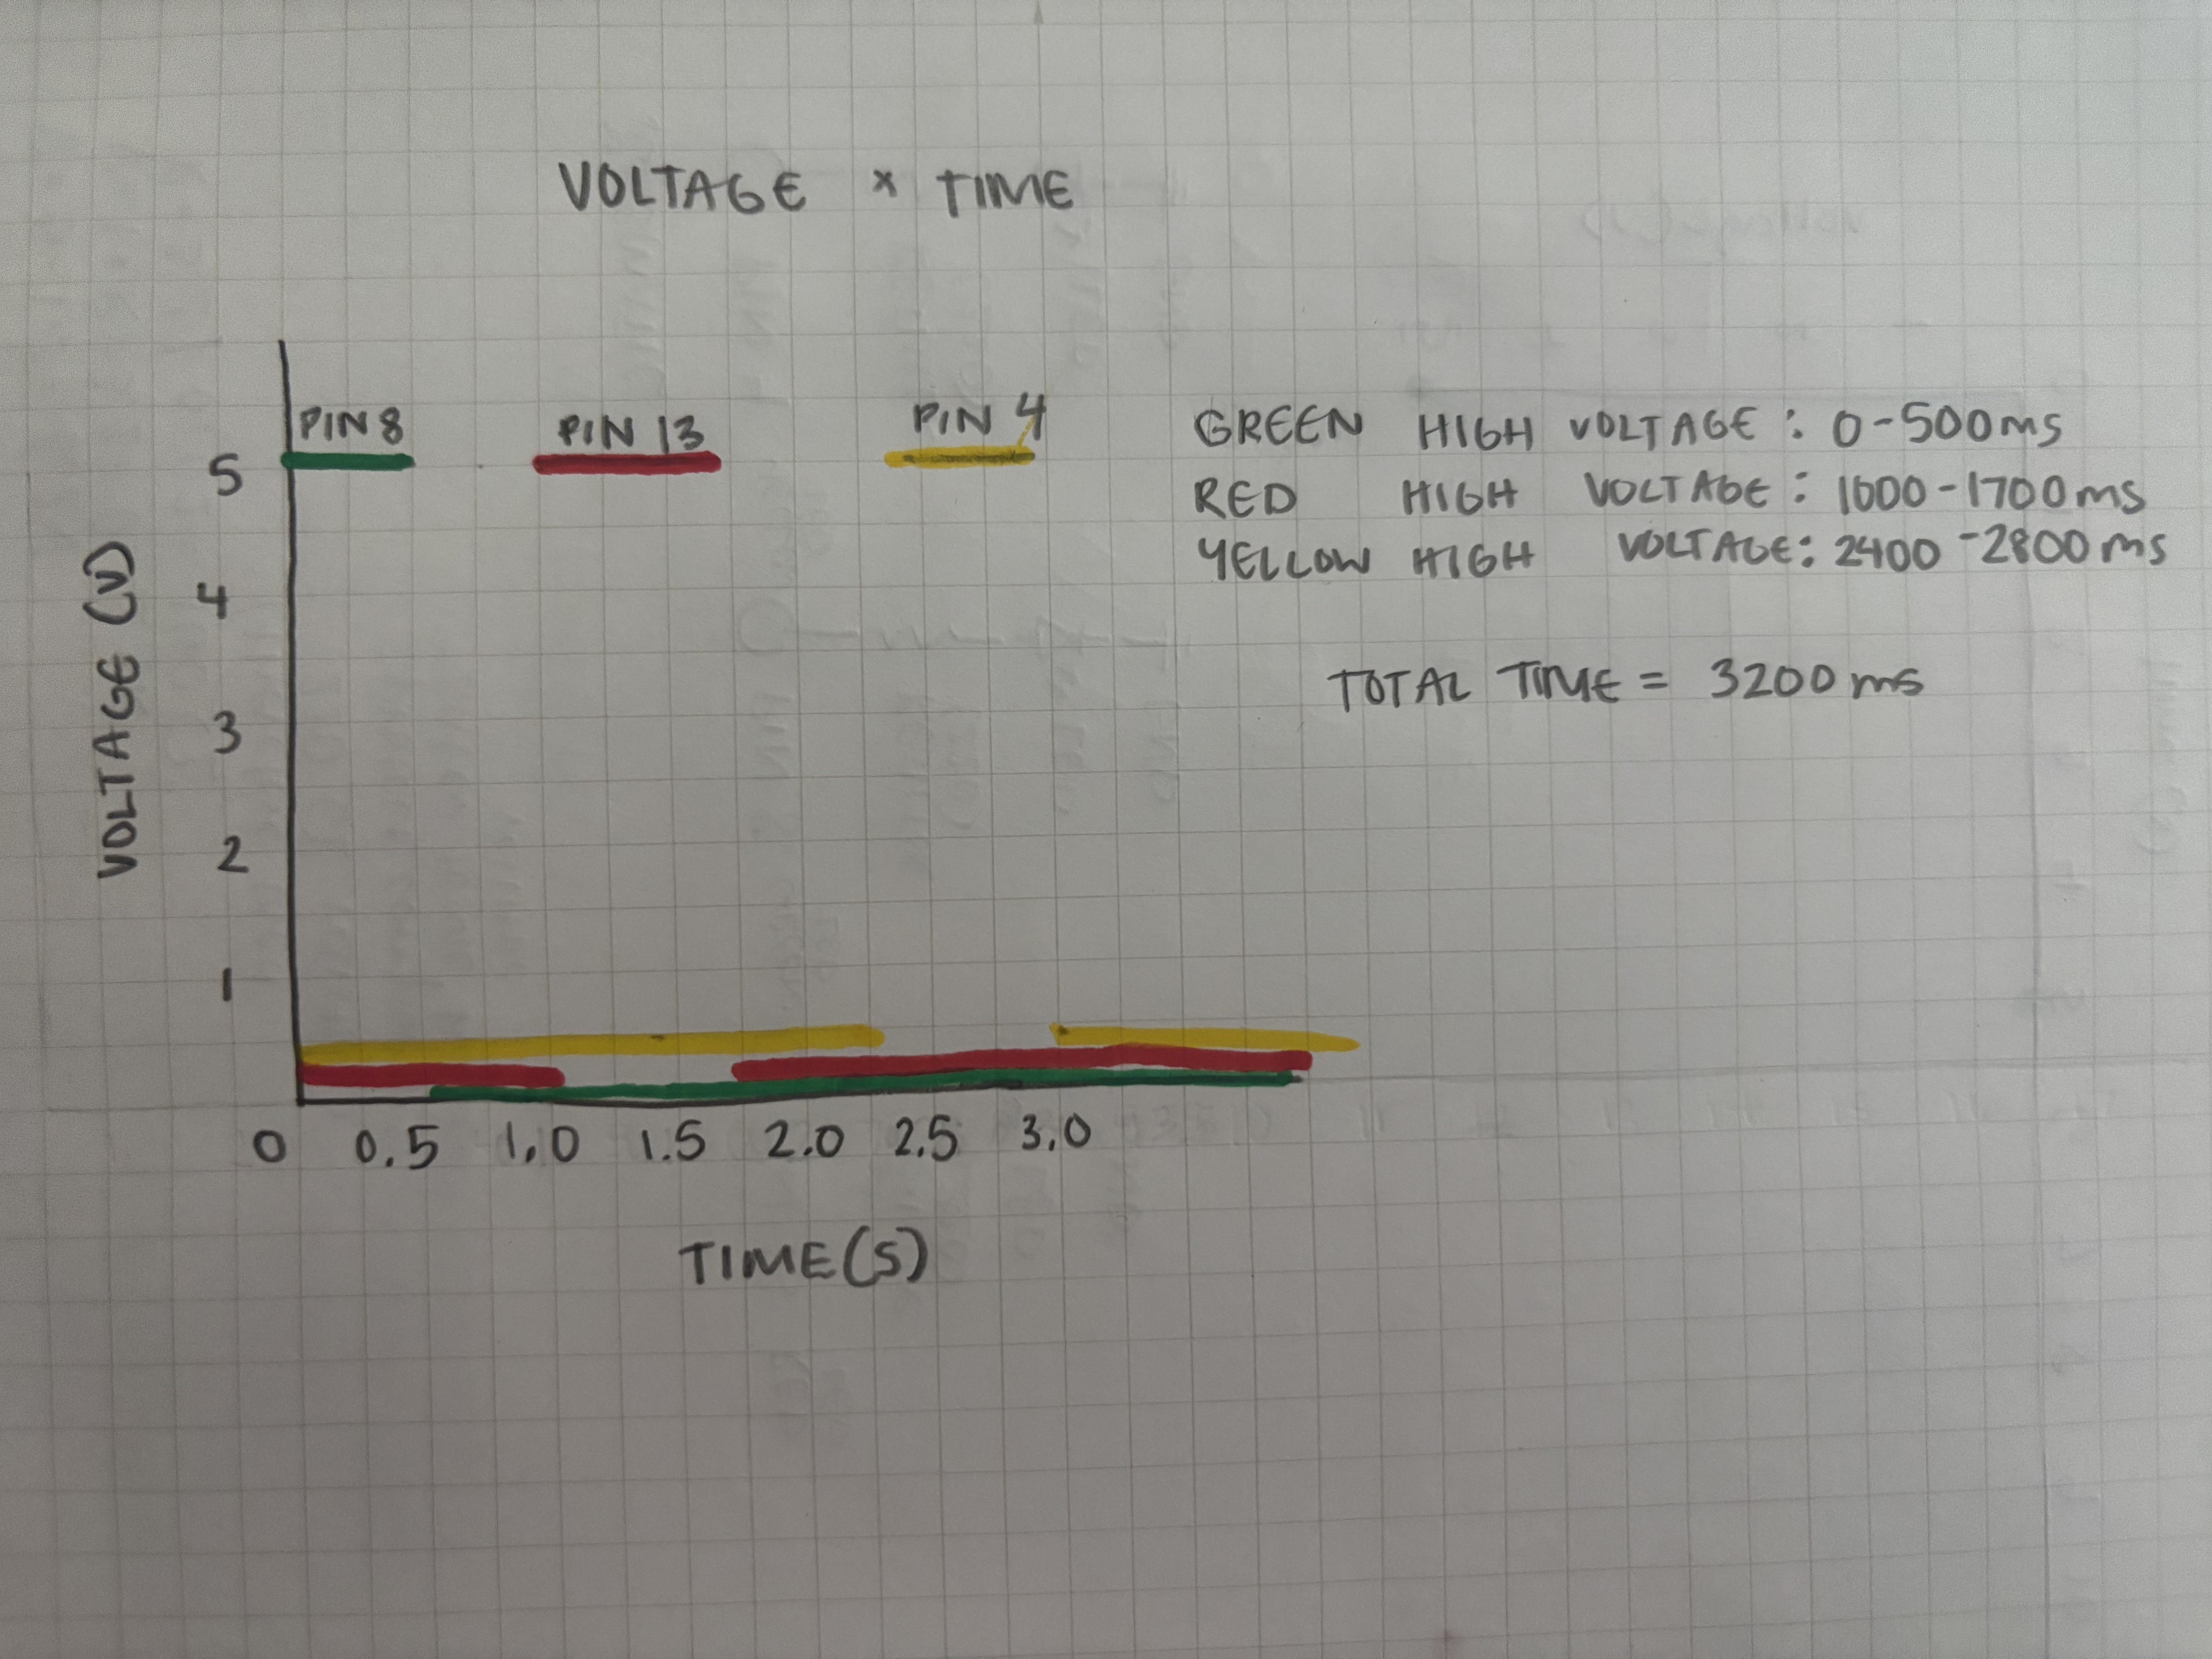 VOLTAGE × TIME
PIN 8 PIN 13 PIN 4
GREEN HIGH VOLTAGE: 0-500ms
RED HIGH VOLTAGE: 1000-1700ms
YELLOW HIGH VOLTAGE: 2400-2800ms
TOTAL TIME = 3200ms
VOLTAGE (V)
5
4
3
2
1
0 0.5 1.0 1.5 2.0 2.5 3.0
TIME(S)